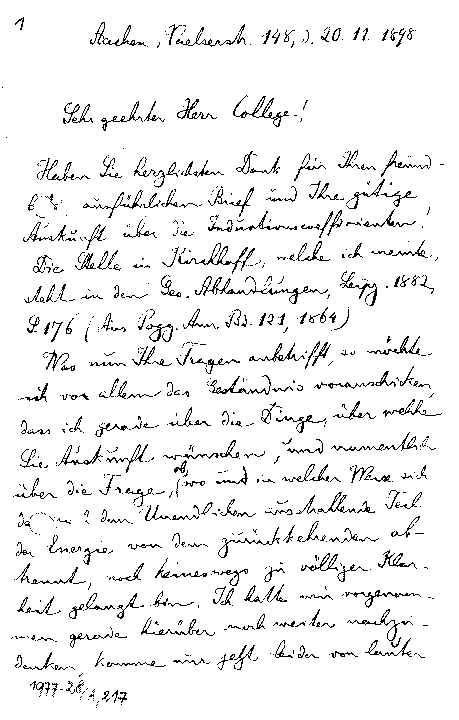 1
Aachen, Vaelserstr. 148, d. 20. 11. 1898
Sehr geehrter Herr College!
Haben Sie herzlichsten Dank für Ihren freund-
ausführlichen Brief und Ihre gütige
Auskunft über die Inductionscoefficienten!
Die Stelle in Kirchhoff, welche ich meinte,
steht in den Ges. Abhandlungen, Leipz. 1882,
S. 176 (Aus Pogg. Ann. Bd. 121, 1864)
Was nun Ihre Fragen anbetrifft, so möchte
ich vor allem das Geständnis voranschicken,
dass ich gerade über die Dinge, über welche
Sie Auskunft wünschen, und namentlich
über die Frage, ob, wo und in welcher Weise sich
der dem Unendlichen zustrahlende Teil
der Energie von dem zurückkehrenden ab-
trennt, noch keineswegs zu völliger Klar-
heit gelangt bin. Ich hatte mir vorgenom-
men gerade hierüber noch weiter nachzu-
denken, komme nur jetzt leider von lauter
1977-28/A,217